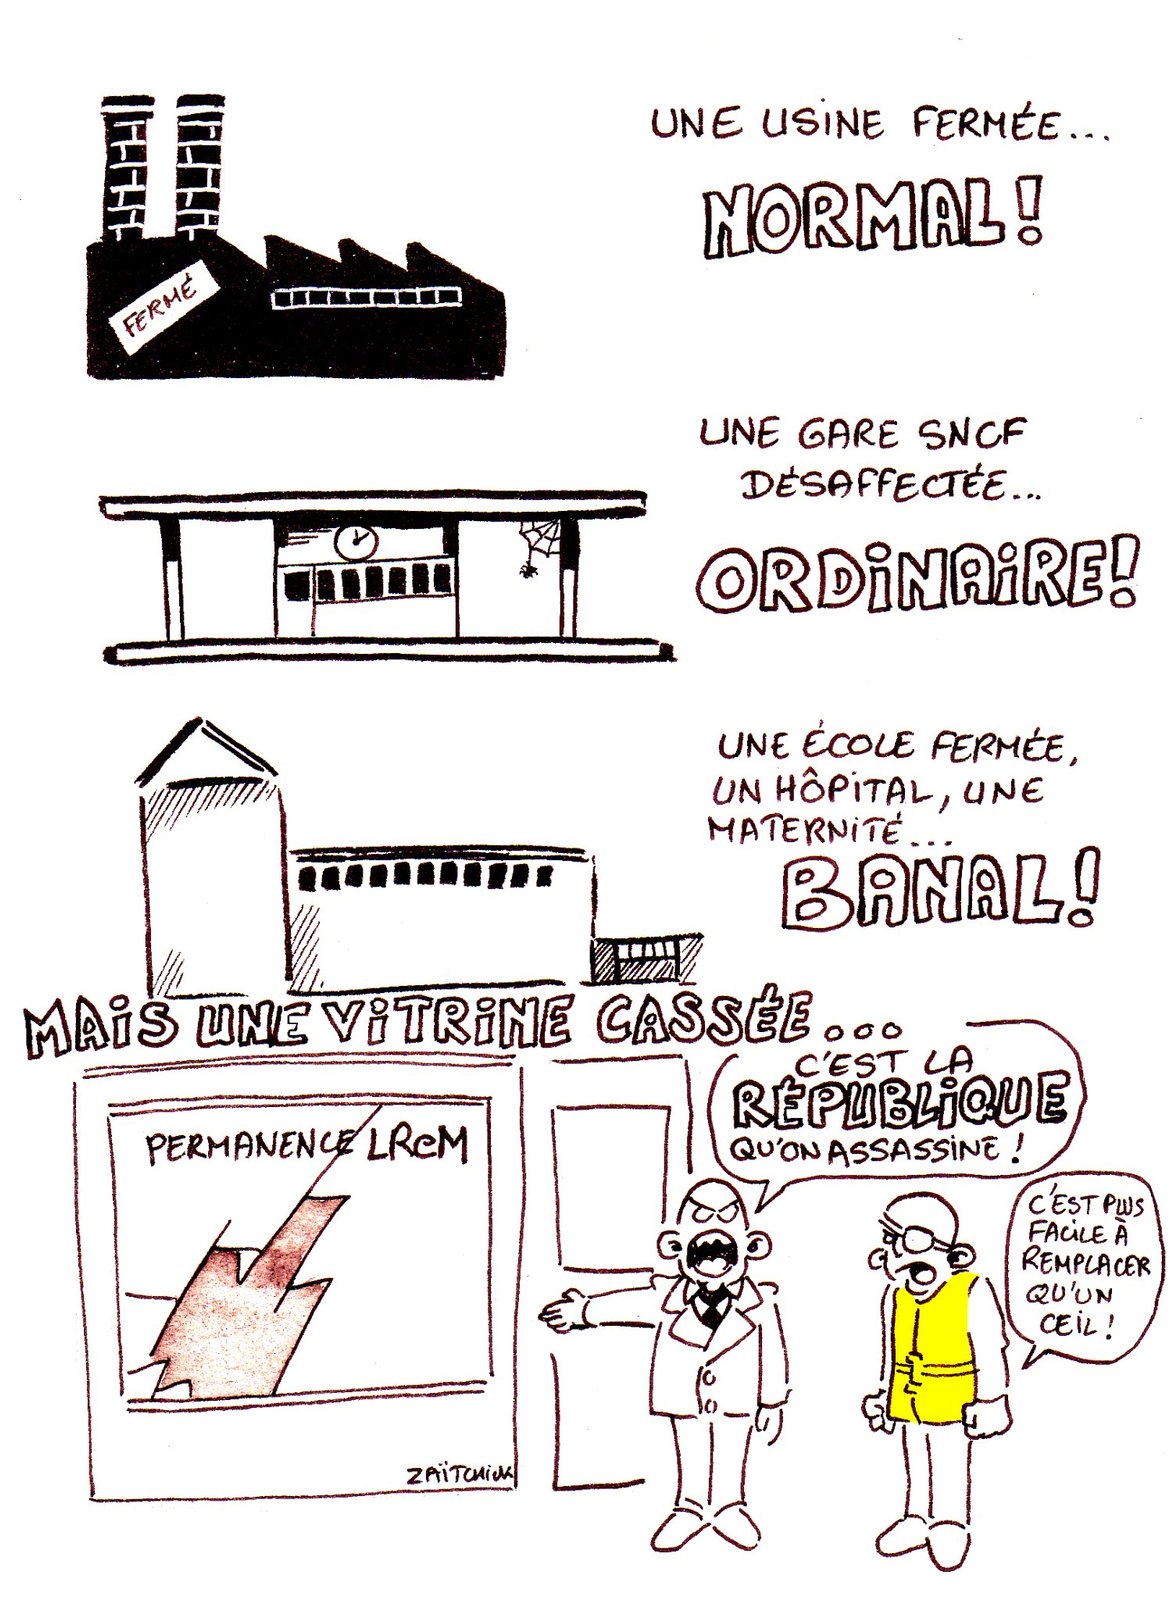 UNE USINE FERMÉE...
NORMAL!
FERMÉ
UNE GARE SNCF
DÉSAFFECTÉE...
ORDINAIRE!
UNE ÉCOLE FERMÉE,
UN HÔPITAL, UNE
MATERNITÉ...
BANAL!
MAIS UNE VITRINE CASSÉE...
C'EST LA
RÉPUBLIQUE
QU'ON ASSASSINE!
PERMANENCE LReM
C'EST PLUS
FACILE À
REMPLACER
QU'UN
ŒIL!
ZAÏTCHICK